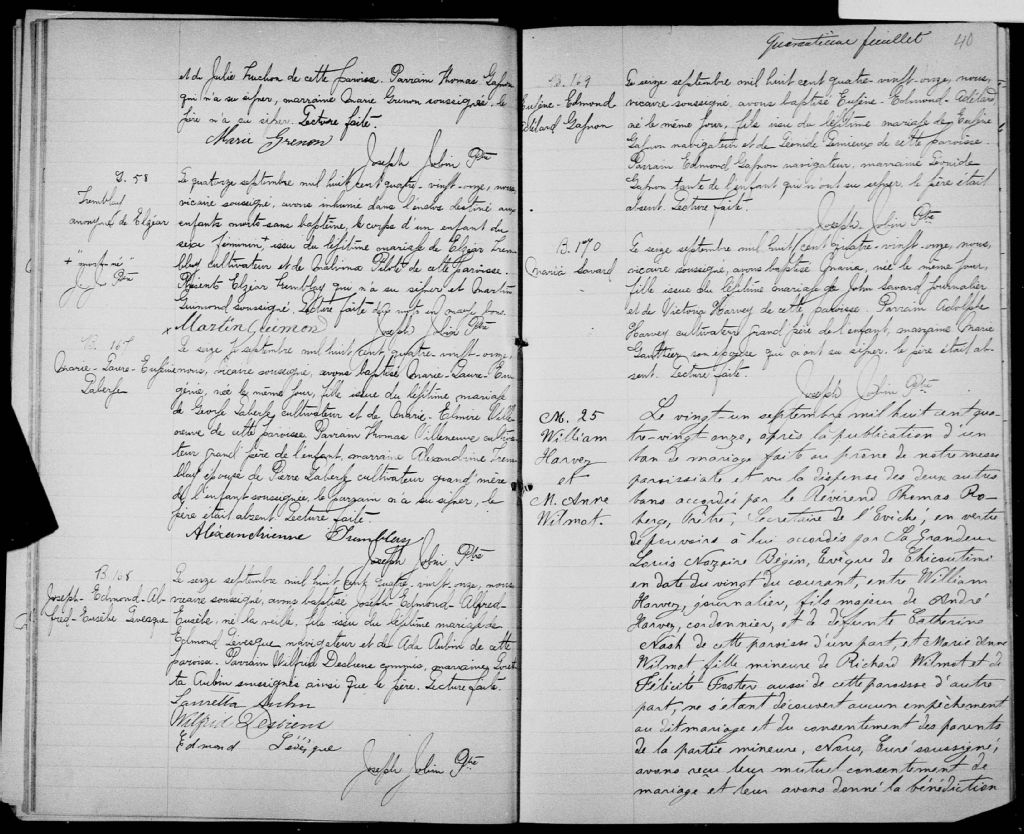 et de Julie Truchon de cette paroisse. Parrain Thomas Gagnon
qui n'a su signer, marraine Marie Grenon soussignée, le
père n'a su signer. Lecture faite.
Marie Grenon
Joseph Jobin Ptre
S. 58
Tremblay
anonyme de Elzéar
+ "mort-né"
J. J. Ptre
Le quatorze septembre mil huit cent quatre-vingt-onze, nous,
vicaire soussigné, avons inhumé dans l'enclos destiné aux
enfants morts sans baptême, le corps d'un enfant du
sexe féminin + issu du légitime mariage de Elzéar Trem-
blay cultivateur et de Malvina Pilote de cette paroisse.
Présents Elzéar Tremblay qui n'a su signer et Martin
Guimond soussigné. Lecture faite
Martin Guimond
Joseph Jobin Ptre
B. 167
Marie-Laure-Eugénie
Laberge
Le seize septembre mil huit cent quatre-vingt-onze,
nous, vicaire soussigné, avons baptisé Marie-Laure-Eu-
génie, née le même jour, fille issue du légitime mariage
de George Laberge cultivateur et de Marie-Elmire Ville-
neuve de cette paroisse. Parrain Thomas Villeneuve cultiva-
teur grand père de l'enfant, marraine Alexandrine Trem-
blay épouse de Pierre Laberge cultivateur grand mère
de l'enfant soussignée, le parrain n'a su signer, le
père était absent. Lecture faite.
Aléxandrienne Tremblay
Joseph Jobin Ptre
B. 168
Joseph-Edmond-Al-
fred-Eusèbe Levesque
Le seize septembre mil huit cent quatre-vingt-onze, nous
vicaire soussigné, avons baptisé Joseph-Edmond-Alfred-
Eusèbe, né la veille, fils issu du légitime mariage de
Edmond Levesque navigateur et de Ada Aubin de cette
paroisse. Parrain Wilfred Desbiens commis, marraine Loret-
ta Aubin soussignés ainsi que le père. Lecture faite.
Lauretta Aubin
Wilfrid Desbiens
Edmond Lévêque
Joseph Jobin Ptre
Quarantième feuillet 40
B. 169
Eugène-Edmond
Adélard Gagnon
Le seize septembre mil huit cent quatre-vingt-onze, nous,
vicaire soussigné, avons baptisé Eugène-Edmond-Adélard
né le même jour, fils issu du légitime mariage de Eugène
Gagnon navigateur et de Léonide Lemieux de cette paroisse.
Parrain Edmond Gagnon navigateur, marraine Léonide
Gagnon tante de l'enfant qui n'ont su signer, le père était
absent. Lecture faite.
Joseph Jobin Ptre
B. 170
Maria Savard
Le seize septembre mil huit cent quatre-vingt-onze, nous,
vicaire soussigné, avons baptisé Maria, née le même jour,
fille issue du légitime mariage de John Savard journalier
et de Victoria Harvey de cette paroisse. Parrain Adolphe
Harvey cultivateur grand père de l'enfant, marraine Marie
Gauthier son épouse qui n'ont su signer. le père était ab-
sent. Lecture faite.
Joseph Jobin Ptre
M. 25
William
Harvey
et
M. Anne
Wilmot.
Le vingt-un septembre mil huit cent qua-
tre-vingt onze, après la publication d'un
ban de mariage faite au prône de notre messe
paroissiale et vu la dispense des deux autres
bans accordée par le Révérend Thomas Ro-
berge, Prêtre, Secrétaire de l'Evêché, en vertu
de pouvoirs à lui accordés par Sa Grandeur
Louis Nazaire Bégin, Evêque de Chicoutimi
en date du vingt du courant, entre William
Harvey, journalier, fils majeur de André
Harvey, cordonnier, et de défunte Catherine
Nash de cette paroisse d'une part, et Marie Anne
Wilmot fille mineure de Richard Wilmot et de
Félicité Foster aussi de cette paroisse d'autre
part, ne s'étant découvert aucun empêchement
au dit mariage et du consentement des parents
de la partie mineure, Nous, Curé soussigné,
avons reçu leur mutuel consentement de
mariage et leur avons donné la bénédiction